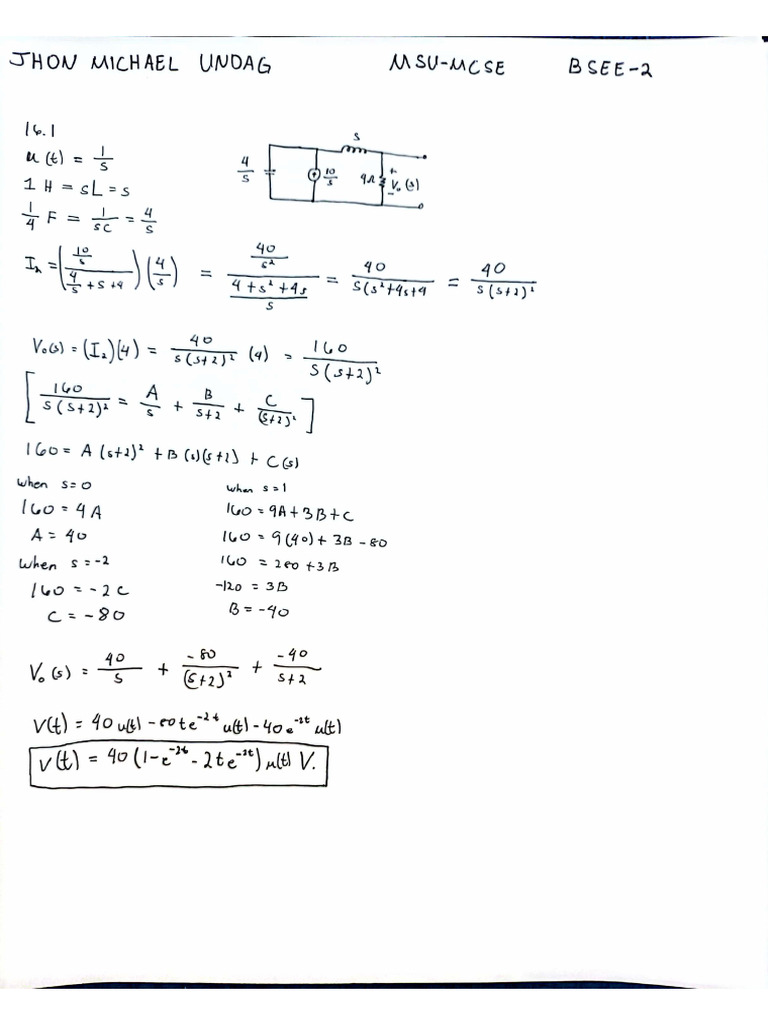 JHON MICHAEL UNDAG MSU-MCSE BSEE-2
16.1
u(t) = 1/s
1 H = sL = s
1/4 F = 1/sC = 4/s
4/s 10/s s 4Ω + V₀(s) -
I₂ = ((10/s)/(4/s + s + 4)) (4/s) = (40/s²)/((4 + s² + 4s)/s) = 40/(s(s² + 4s + 4 = 40/(s(s+2)²
V₀(s) = (I₂)(4) = 40/(s(s+2)²) (4) = 160/(s(s+2)²)
[160/(s(s+2)²) = A/s + B/(s+2) + C/(s+2)²]
160 = A(s+2)² + B(s)(s+2) + C(s)
when s=0
160 = 4A
A = 40
when s = -2
160 = -2C
C = -80
when s=1
160 = 9A + 3B + C
160 = 9(40) + 3B - 80
160 = 280 + 3B
-120 = 3B
B = -40
V₀(s) = 40/s + -80/(s+2)² + -40/(s+2)
V(t) = 40u(t) - 80te⁻²ᵗ u(t) - 40e⁻²ᵗ u(t)
V(t) = 40(1 - e⁻²ᵗ - 2te⁻²ᵗ) u(t) V.